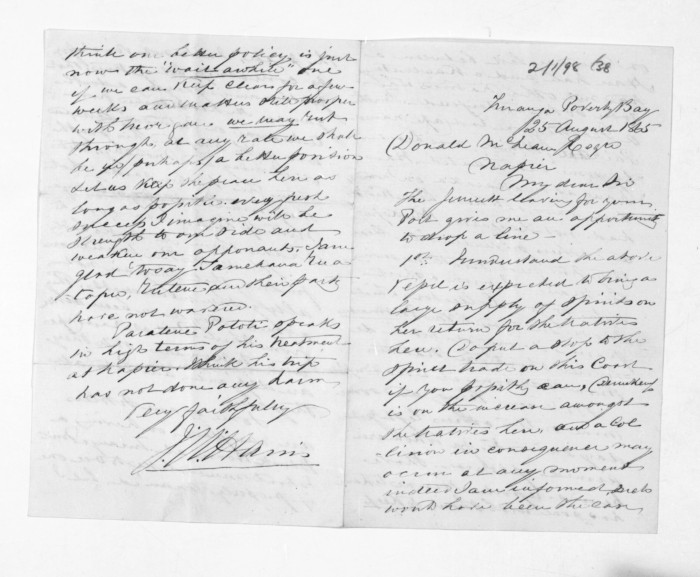 think our better policy is just
now the "wait awhile" one
if we can keep clear for a few
weeks and matters still prosper
with their we may rub
through, at any rate we shall
be in (perhaps) a better position
Let us keep the peace here as
long as possible, every fresh
success I imagine will be
strength to our side and
weaken our opponents. I am
glad to say Tamehana
and their party
have not warred.
Paratene Pototi speaks
in high terms of his treatment
at Napier. I think his trip
has not done any harm
Very faithfully
J.W. Harris
2/1/98 /38
Turanga Poverty Bay
25 August 1865
Donald McLean Esqre
Napier
My dear Sir
The Jennett leaving for your
Port gives me an opportunity
to drop a line -
1st I understand the above
vessel is expected to bring a
large supply of spirits on
her return for the Natives
here. Do put a stop to the
spirit trade on this Coast
if you possibly can, Drunkenness
is on the increase amongst
the Natives here and a col
lision in consequence may
occur at any moment
indeed I am informed such
would have been the case